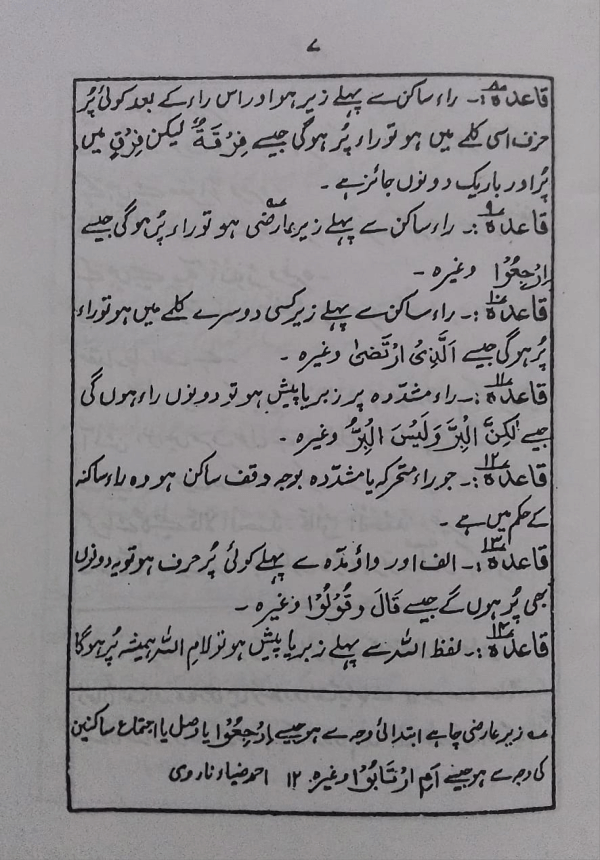 ۷
قاعدہ ۸:۔ راء ساکن سے پہلے زیر ہو اور اس راء کے بعد کوئی پُر
حرف اسی کلمے میں ہو تو راء پُر ہوگی جیسے فِرْقَةٌ لیکن فِرْقٍ میں
پُر اور باریک دونوں جائز ہے۔
قاعدہ ۹:۔ راء ساکن سے پہلے زیر عارضی ہو تو راء پُر ہوگی جیسے
اِرْجِعُوْا وغیرہ۔
قاعدہ ۱۰:۔ راء ساکن سے پہلے زیر کسی دوسرے کلمے میں ہو تو راء
پُر ہوگی جیسے اَلَّذِی ارْتَضیٰ وغیرہ۔
قاعدہ ۱۱:۔ راء مشدّدہ پر زبر یا پیش ہو تو دونوں راء ہوں گی
جیسے لٰکِنَّ الْبِرَّ وَلَیْسَ الْبِرُّ وغیرہ۔
قاعدہ ۱۲:۔ جو راء متحرکہ یا مشدّدہ بوجہ وقف ساکن ہو وہ راء ساکنہ
کے حکم میں ہے۔
قاعدہ ۱۳:۔ الف اور واؤ مدّہ سے پہلے کوئی پُر حرف ہو تو یہ دونوں
بھی پُر ہوں گے جیسے قَالَ وقُوْلُوْا وغیرہ۔
قاعدہ ۱۴:۔ لفظ اللہ سے پہلے زبر یا پیش ہو تو لامِ اللہ ہمیشہ پُر ہوگا
؎ زیر عارضی چاہے ابتدائی وجہ سے ہو جیسے اِرْجِعُوْا یا وصل یا اجتماع ساکنین
کی وجہ سے ہو جیسے اَمِ ارْتَابُوْا وغیرہ ۱۲ احمد ضیاء ناروی